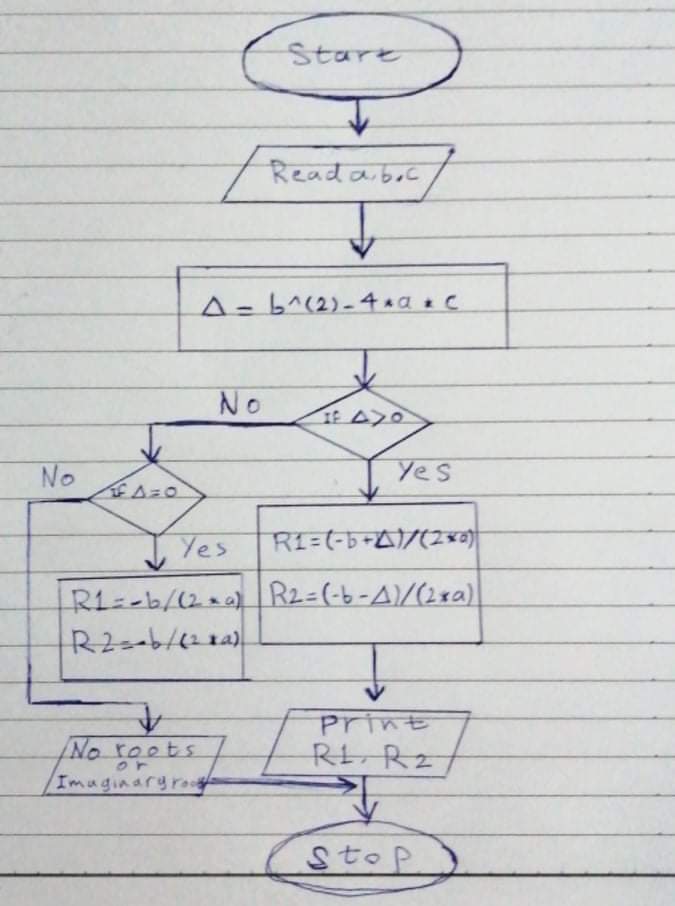 Start
Read a, b, c
Δ = b^(2)-4*a*c
If Δ>0
No
Yes
No
If Δ=0
Yes
R1=(-b+Δ)/(2*a)
R2=(-b-Δ)/(2*a)
R1=-b/(2*a)
R2=-b/(2*a)
Print
R1, R2
No roots
or
Imaginary roo
Stop